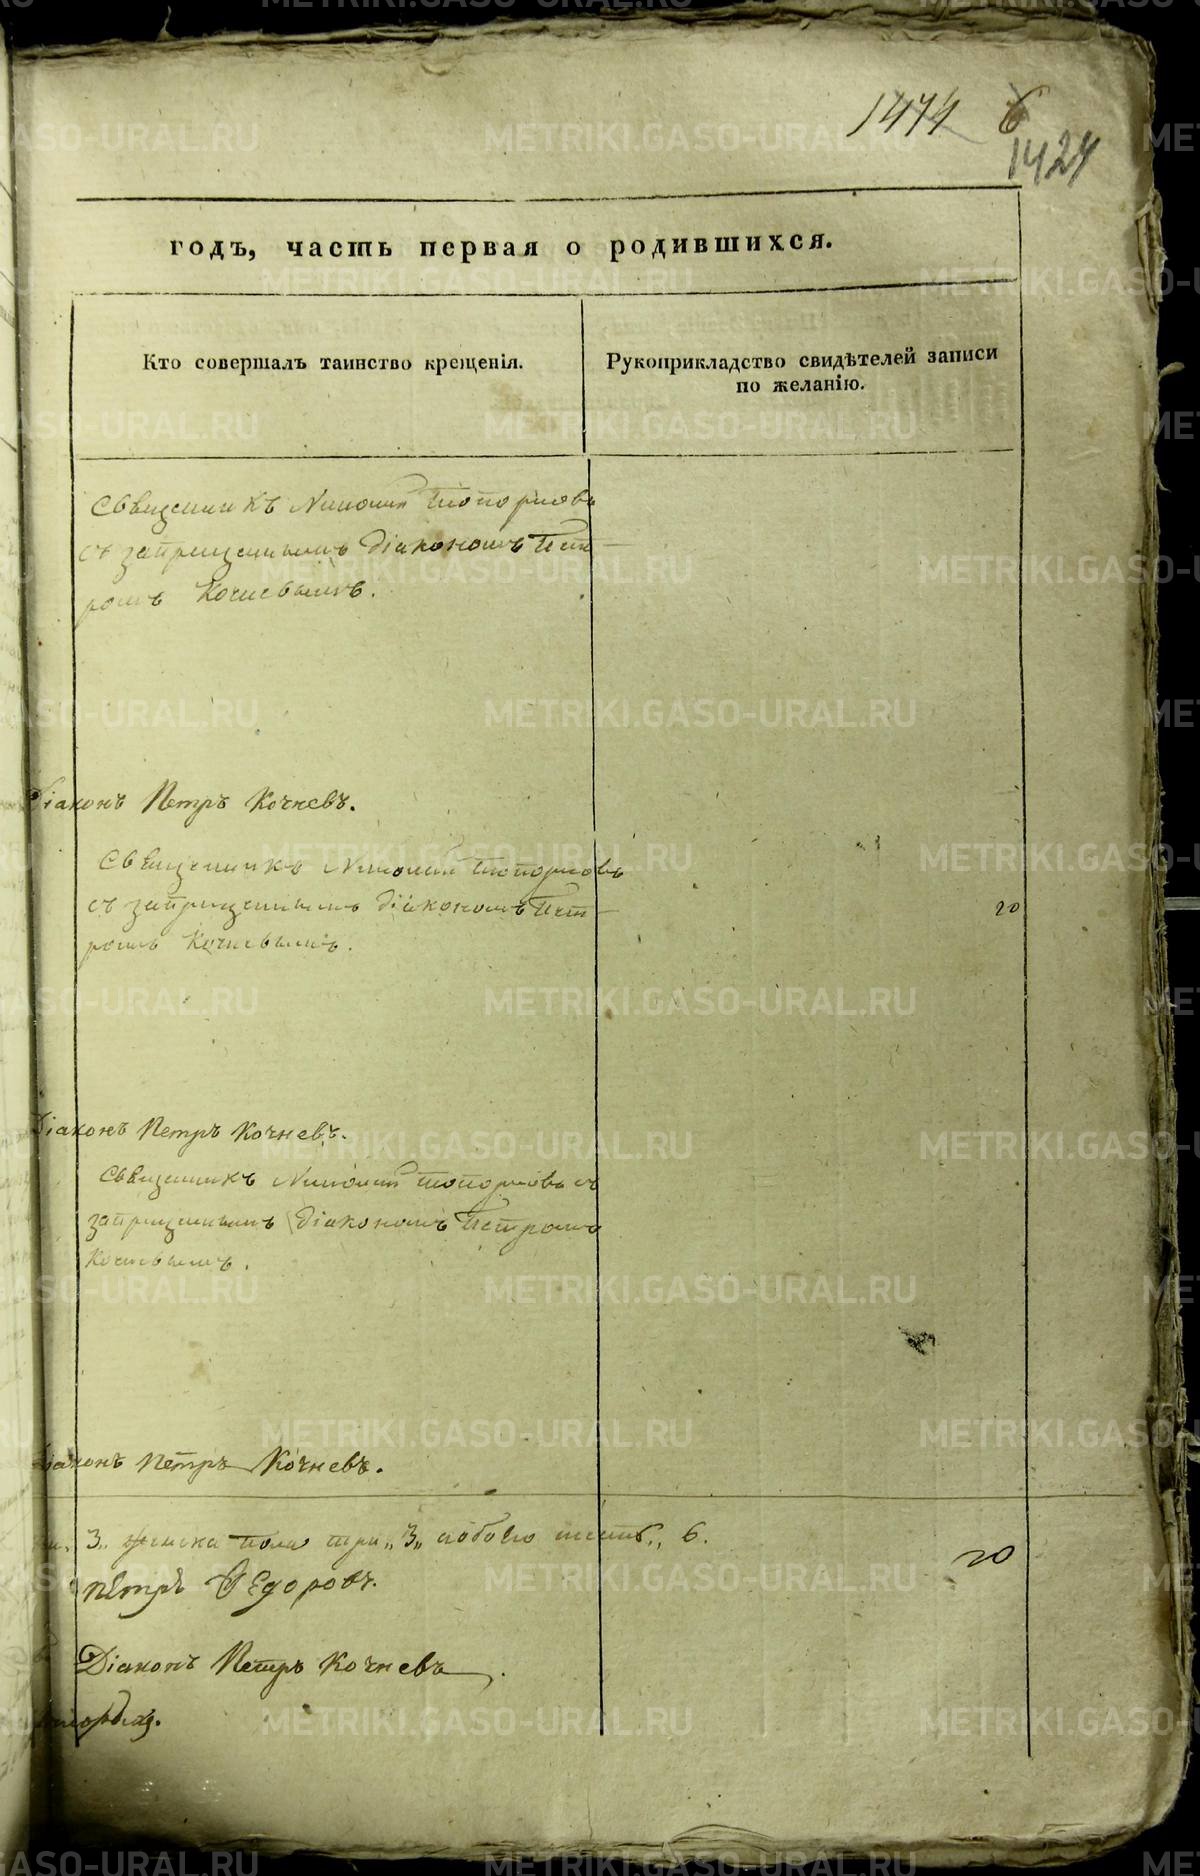 1474 6
1424
годъ, часть первая о родившихся.
Кто совершалъ таинство крещенія.
Рукоприкладство свидѣтелей записи
по желанію.
Священникъ Топорковъ
съ запрещеннымъ діакономъ Пет-
ромъ Кочневымъ.
Діаконъ Петръ Кочневъ.
Священникъ Топорковъ
съ запрещеннымъ діакономъ Пет-
ромъ Кочневымъ.
20
Діаконъ Петръ Кочневъ.
Священникъ Топорковъ съ
запрещеннымъ діакономъ Петромъ
Кочневымъ.
Діаконъ Петръ Кочневъ.
3„ женска пола три „3„ обоего шесть„ 6.
20
Петръ Ѳедоровъ.
Діаконъ Петръ Кочневъ.
METRIKI.GASO-URAL.RU